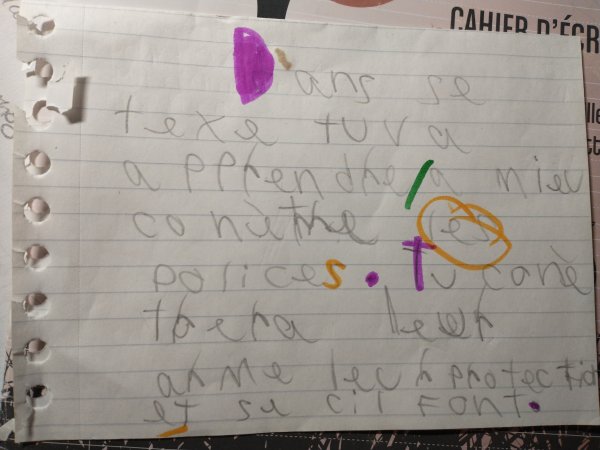 CAHIER D'ÉCR
Dans se
texe tu va
apprendre / a mieu
conètre les
polices. Tu conè
trera leur
arme leur protection
et se cil font.